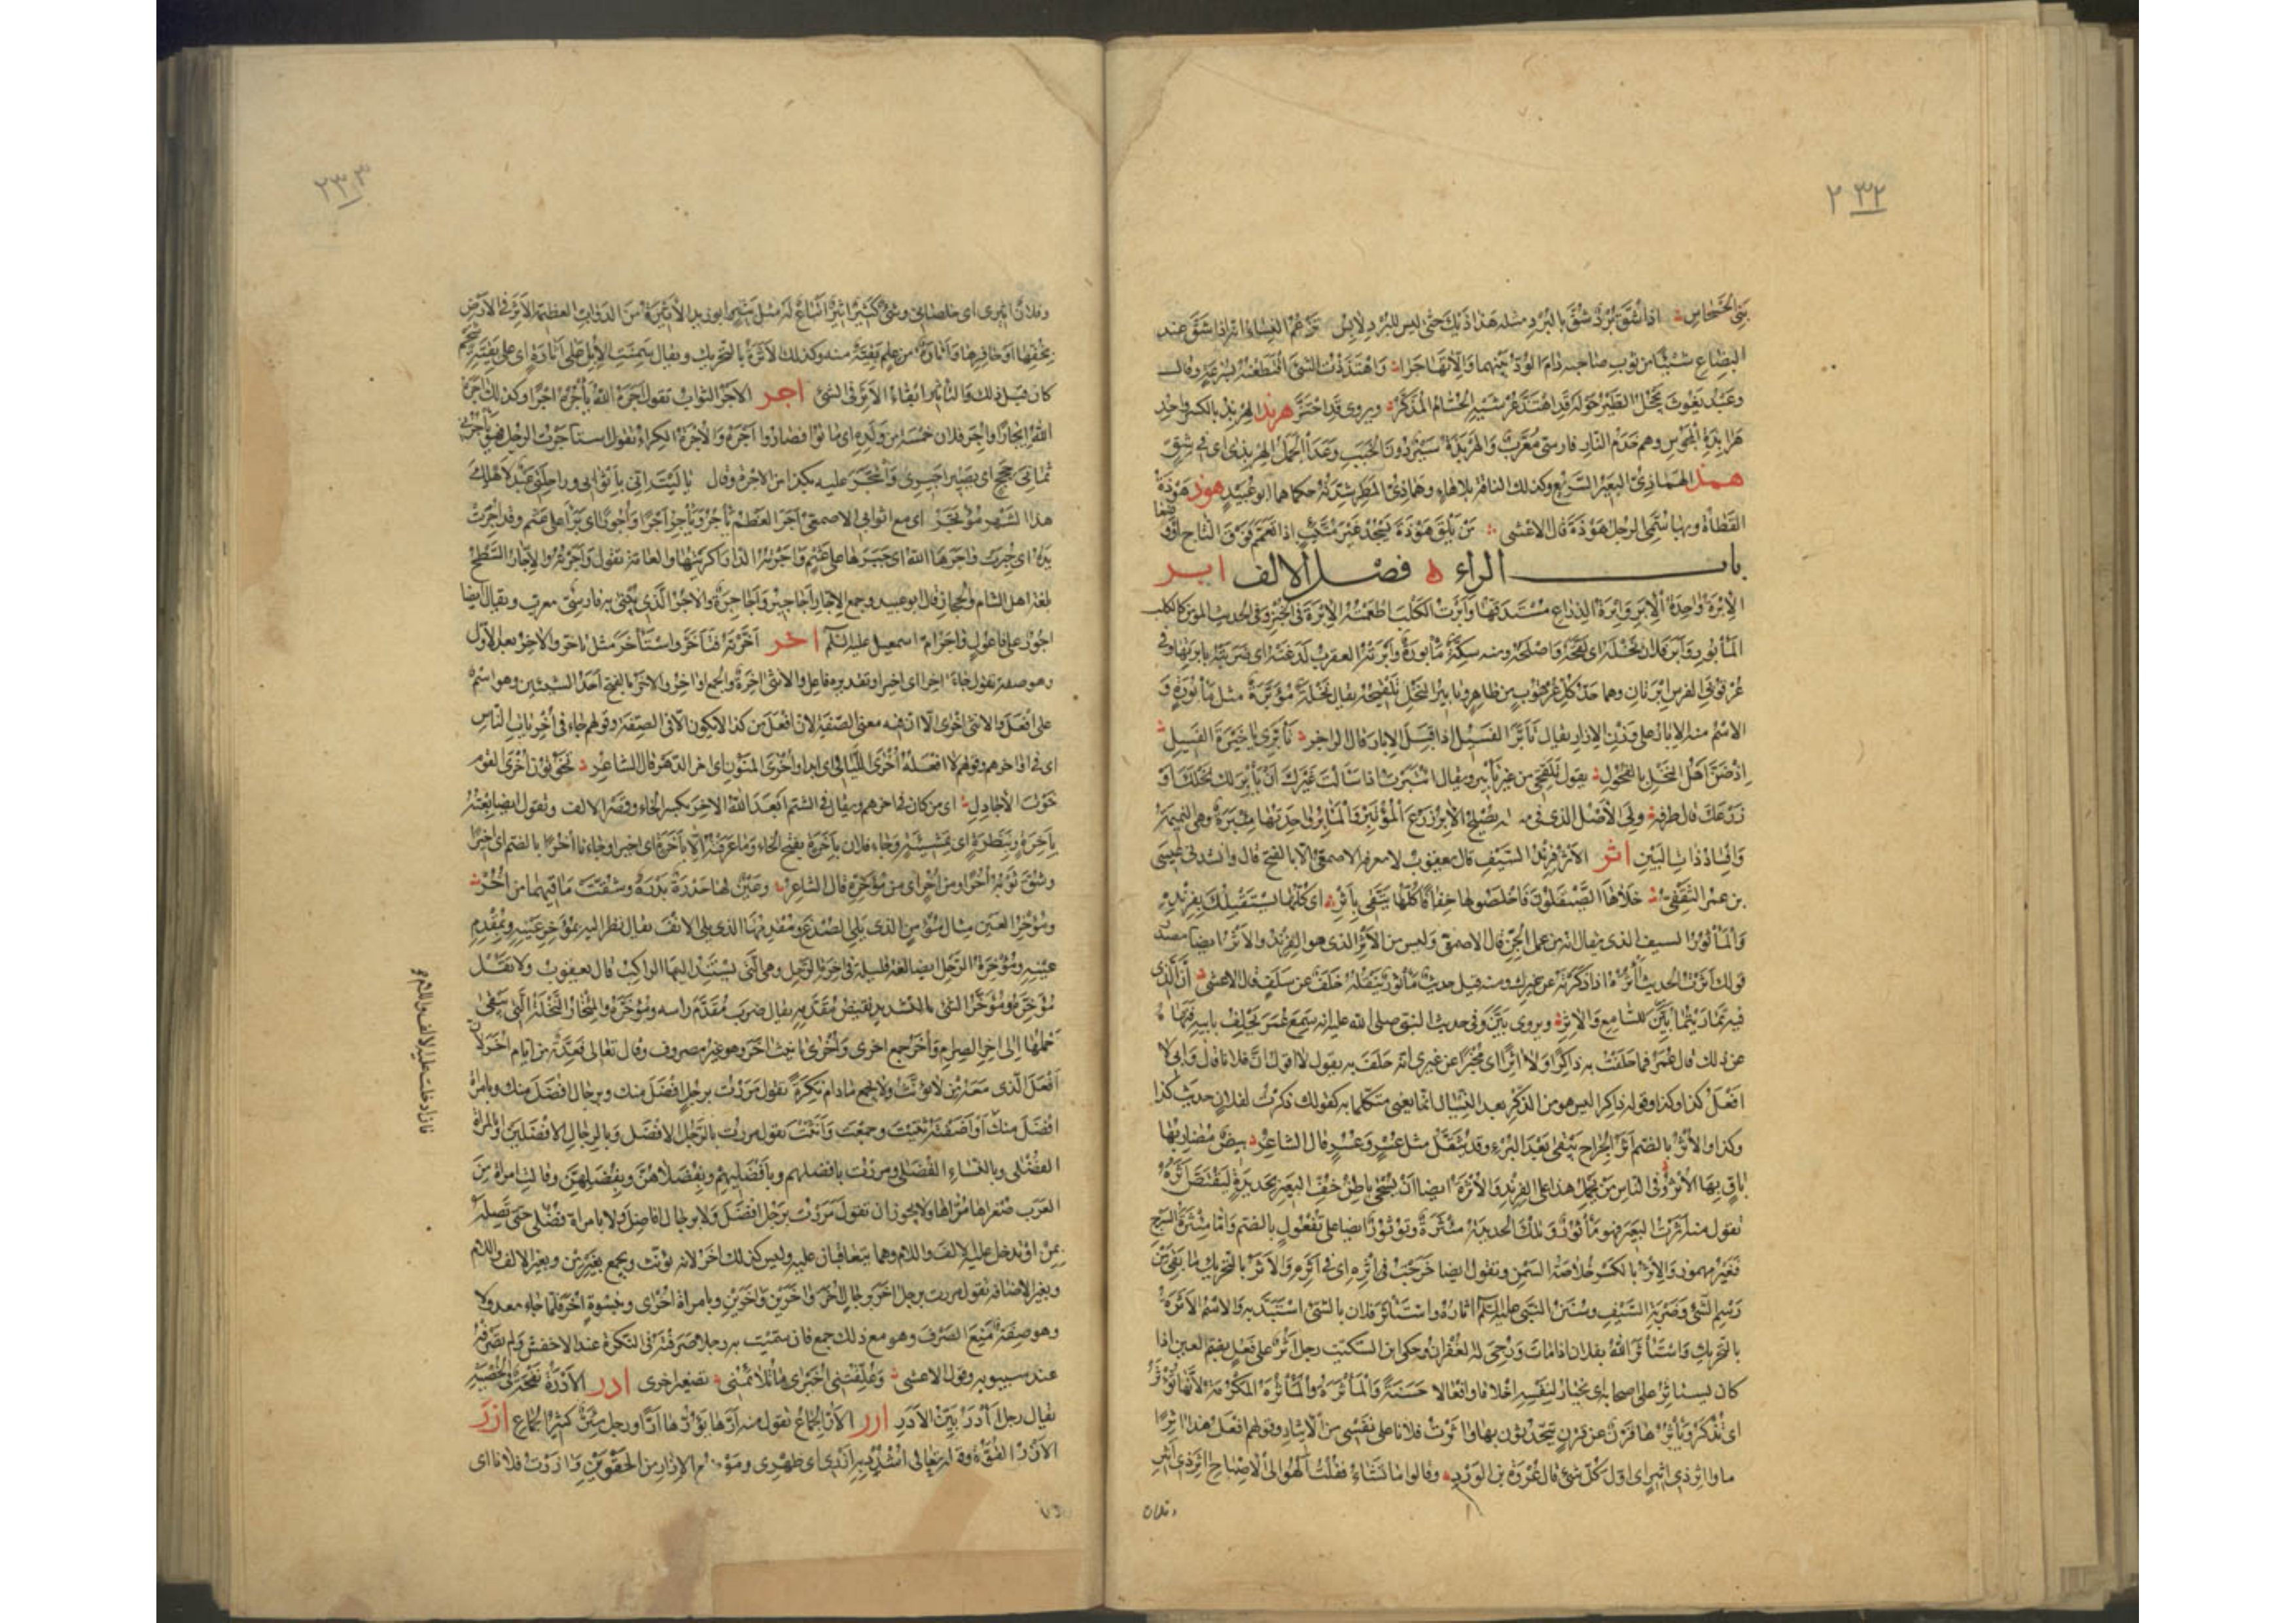 ٢٣٢
بني الحسحاس اذا شق برد شق بالبرد مثله هذاذيك حتى ليس للبرد لابس تزعم النساء انه اذا شق عند
البضاع شيئا من ثوب صاحبه دام الود بينهما والا تهاجرا واهتذذت الشئ اقتطعته بسرعة وقال
وعبد يغوث تحجل الطير حوله قد اهتذ عرشيه الحسام المذكر ويروى قد احتز هربذ الهربذ بالكسر واحد
هرابذة المجوس وهم خدم النار فارسي معرب والهربذة سير دون الخبب وعدا الجمل الهربذى اى في شق
همذ الهماذى البعير السريع وكذلك الناقة بلا هاء وهماذى المطر شدته حكاهما ابو عبيد هوذ هوذة
القطاة وبها سمى الرجل هوذة قال الاعشى من يلق هوذة يسجد غير متئب اذا تعمم فوق التاج او وضعا
باب الراء فصل الالف ابر
الابرة واحدة الابر وابرة الذراع مستدقها وابرت الكلب اطعمته الابرة في الخبز وفي الحديث المؤمن كالكلب
المأبور وابر فلان نخله اى لقحه واصلحه ومنه سكة مأبورة وابرته العقرب لدغته اى ضربته بابرتها وفي
عرقوبي الفرس ابرتان وهما حد كل عرقوب من ظاهر وتأبير النخل تلقيحه يقال نخلة مؤبرة مثل مأبورة و
الاسم منه الابار على وزن الازار يقال تأبر الفسيل اذا قبل الابار قال الراجز تأبرى يا خيرة الفسيل
اذ ضن اهل النخل بالفحول يقول تلقحي من غير تأبير ويقال ائتبرت اذا سألت غيرك ان يأبر لك نخلك او
زرعك قال طرفة ولي الاصل الذى في مثله يصلح الابر زرع المؤتبر والمآبر واحدتها مئبرة وهي النميمة
وافساد ذات البين اثر الاثر فرند السيف قال يعقوب لا يعرفه الاصمعي الا بالفتح قال وانشدني عيسى
بن عمر الثقفي جلاها الصيقلون فاخلصوها خفافا كلها يتقى باثر اى كلها يستقبلك بفرنده
والمأثور السيف الذى يقال انه من عمل الجن قال الاصمعي وليس من الاثر الذى هو الفرند والاثر ايضا مصدر
قولك اثرت الحديث آثره اذا ذكرته عن غيرك ومنه قيل حديث مأثور ينقله خلف عن سلف قال الاعشى ان الذى
فيه تماريتما بين للسامع والاثر ويروى بين وفي حديث النبي صلى الله عليه انه سمع عمر يحلف بابيه فنهاه
عن ذلك قال عمر فما حلفت به ذاكرا ولا آثرا اى مخبرا عن غيرى انه حلف به يقول لا اقول ان فلانا قال وابي لا
افعل كذا وكذا وقوله ذاكرا ليس هو من الذكر بعد النسيان انما يعنى متكلما به كقولك ذكرت لفلان حديث كذا
وكذا والاثر بالضم اثر الجراح يبقى بعد البرء وقد يثقل مثل عسر وعسر قال الشاعر بيض مضاربها
باق بها الاثر وفي الناس من يحمل هذا على الفرند والاثرة ايضا ان يسحى باطن خف البعير بحديدة ليقتص اثره
تقول منه اثرت البعير فهو مأثور وتلك الحديدة مئثرة وتؤثور ايضا على تفعول بالضم واما ميثرة السرج
فغير مهموز والاثر بالكسر خلاصة السمن وتقول ايضا خرجت في اثره اى في اثره والاثر بالتحريك ما بقي من
رسم الشئ وضربة السيف وسنن النبي عليه السلم آثاره واستأثر فلان بالشئ استبد به والاسم الاثرة
بالتحريك واستأثر الله بفلان اذا مات ورجى له الغفران وحكى ابن السكيت رجل اثر على فعل بضم العين اذا
كان يستأثر على اصحابه اى يختار لنفسه اخلاقا وافعالا حسنة والمأثرة والمأثرة المكرمة لانها تؤثر
اى تذكر ويأثرها قرن عن قرن يتحدثون بها وآثرت فلانا على نفسي من الايثار وقولهم افعل هذا آثرا
ما وآثر ذى اثير اى اول كل شئ قال عروة بن الورد وقالوا ما تشاء فقلت الهو الى الاصباح آثر ذى اثير
وفلان
٢٣٣
وفلان اثيرى اى خلصاني وشئ كثير اثير اتباع له مثل بثير ابو زيد الاثيرة من الدواب العظيمة الاثر في الارض
بخفها او حافرها واثارة من علم بقية منه وكذلك الاثرة بالتحريك ويقال سمنت الابل على اثارة اى على بقية شحم
كان قبل ذلك والتأثير ابقاء الاثر في الشئ اجر الاجر الثواب تقول اجره الله يأجره اجرا وكذلك آجره
الله ايجارا واجر فلان خمسة من ولده اى ماتوا فصاروا اجره والاجرة الكراء تقول استأجرت الرجل فهو يأجرني
ثماني حجج اى يصير اجيرى وائتجر عليه بكذا من الاجرة وقال يا ليت اني باثوابي وراحلتي عبد لاهلك
هذا الشهر مؤتجر اى مع اثوابي الاصمعي اجر العظم يأجر ويأجر اجرا واجورا اى برأ على عثم وقد اجرت
يده اى جبرت وآجرها الله اى جبرها على عثم وآجرته الدار اكريتها والعامة تقول واجرته والاجار السطح
بلغة اهل الشام والحجاز قال ابو عبيد وجمع الاجار اجاجير واجاجرة والآجر الذى يبنى به فارسي معرب ويقال ايضا
آجور على فاعول وآجر ام اسمعيل عليه السلم اخر اخرته فتأخر واستأخر مثل تأخر والآخر بعد الاول
وهو صفة تقول جاء آخرا اى اخيرا وتقديره فاعل والانثى آخرة والجمع اواخر والآخر بالفتح احد الشيئين وهو اسم
على افعل والانثى اخرى الا ان فيه معنى الصفة لان افعل من كذا لا يكون الا في الصفة وقولهم جاء في اخريات الناس
اى في اواخرهم وقولهم لا افعله اخرى الليالي اى ابدا واخرى المنون اى آخر الدهر قال الشاعر
خوت الاجادل اى من كان في آخرهم ويقال في الشتم ابعد الله الاخر بكسر الخاء وقصر الالف وتقول ايضا بعته
باخرة وبنظرة اى بنسيئة وجاء فلان باخرة بفتح الخاء وما عرفته الا باخرة اى اخيرا وجاءنا اخرا بالضم اى اخيرا
وشق ثوبه اخرا ومن اخر اى من مؤخره قال الشاعر وعين لها حدرة بدرة وشقت مآقيهما من اخر
ومؤخر العين مثال مؤمن الذى يلي الصدغ ومقدمها الذى يلي الانف يقال نظر اليه بمؤخر عينه وبمقدم
عينه ومؤخرة الرحل ايضا لغة قليلة في آخرة الرحل وهي التي يستند اليها الراكب قال يعقوب ولا تقل
مؤخرة ومؤخر الشئ بالتشديد نقيض مقدمه يقال ضرب مقدم رأسه ومؤخره والمئخار النخلة التي يبقى
حملها الى آخر الصرام واخر جمع اخرى واخرى تأنيث آخر وهو غير مصروف وقال تعالى فعدة من ايام اخر لان
افعل الذى معه من لا يؤنث ولا يجمع مادام نكرة تقول مررت برجل افضل منك وبرجال افضل منك وبامرأة
افضل منك او اضفته ثنيت وجمعت وانثت تقول مررت بالرجل الافضل وبالرجال الافضلين وبالمرأة
الفضلى وبالنساء الفضل ومررت بافضلهم وبافضليهم وبفضلاهن وبفضلهن وقالت امرأة من
العرب صغراها مراها ولا يجوز ان تقول مررت برجل افضل ولا برجال افاضل ولا بامرأة فضلى حتى تصله
بمن او تدخل عليه الالف واللام وهما يتعاقبان عليه وليس كذلك آخر لانه يؤنث ويجمع بغير من وبغير الالف واللام
وبغير الاضافة تقول مررت برجل آخر وبرجال اخر وآخرين وآخرين وبامرأة اخرى وبنسوة اخر فلما جاء معدولا
وهو صفة منع الصرف وهو مع ذلك جمع فان سميت به رجلا صرفته في النكرة عند الاخفش ولم تصرفه
عند سيبويه وقول الاعشى وعلقتني اخيرى ما تلائمني تصغير اخرى ادر الادرة نفخة في الخصية
يقال رجل آدر بين الادر ارر الار الجماع تقول منه ارها يؤرها ارا ورجل مئر كثير الجماع ازر
الازر القوة وقوله تعالى اشدد به ازرى اى ظهرى وموضع الازار من الحقوين وآزرت فلانا اى
فان ادخلت عليه الالف واللام او